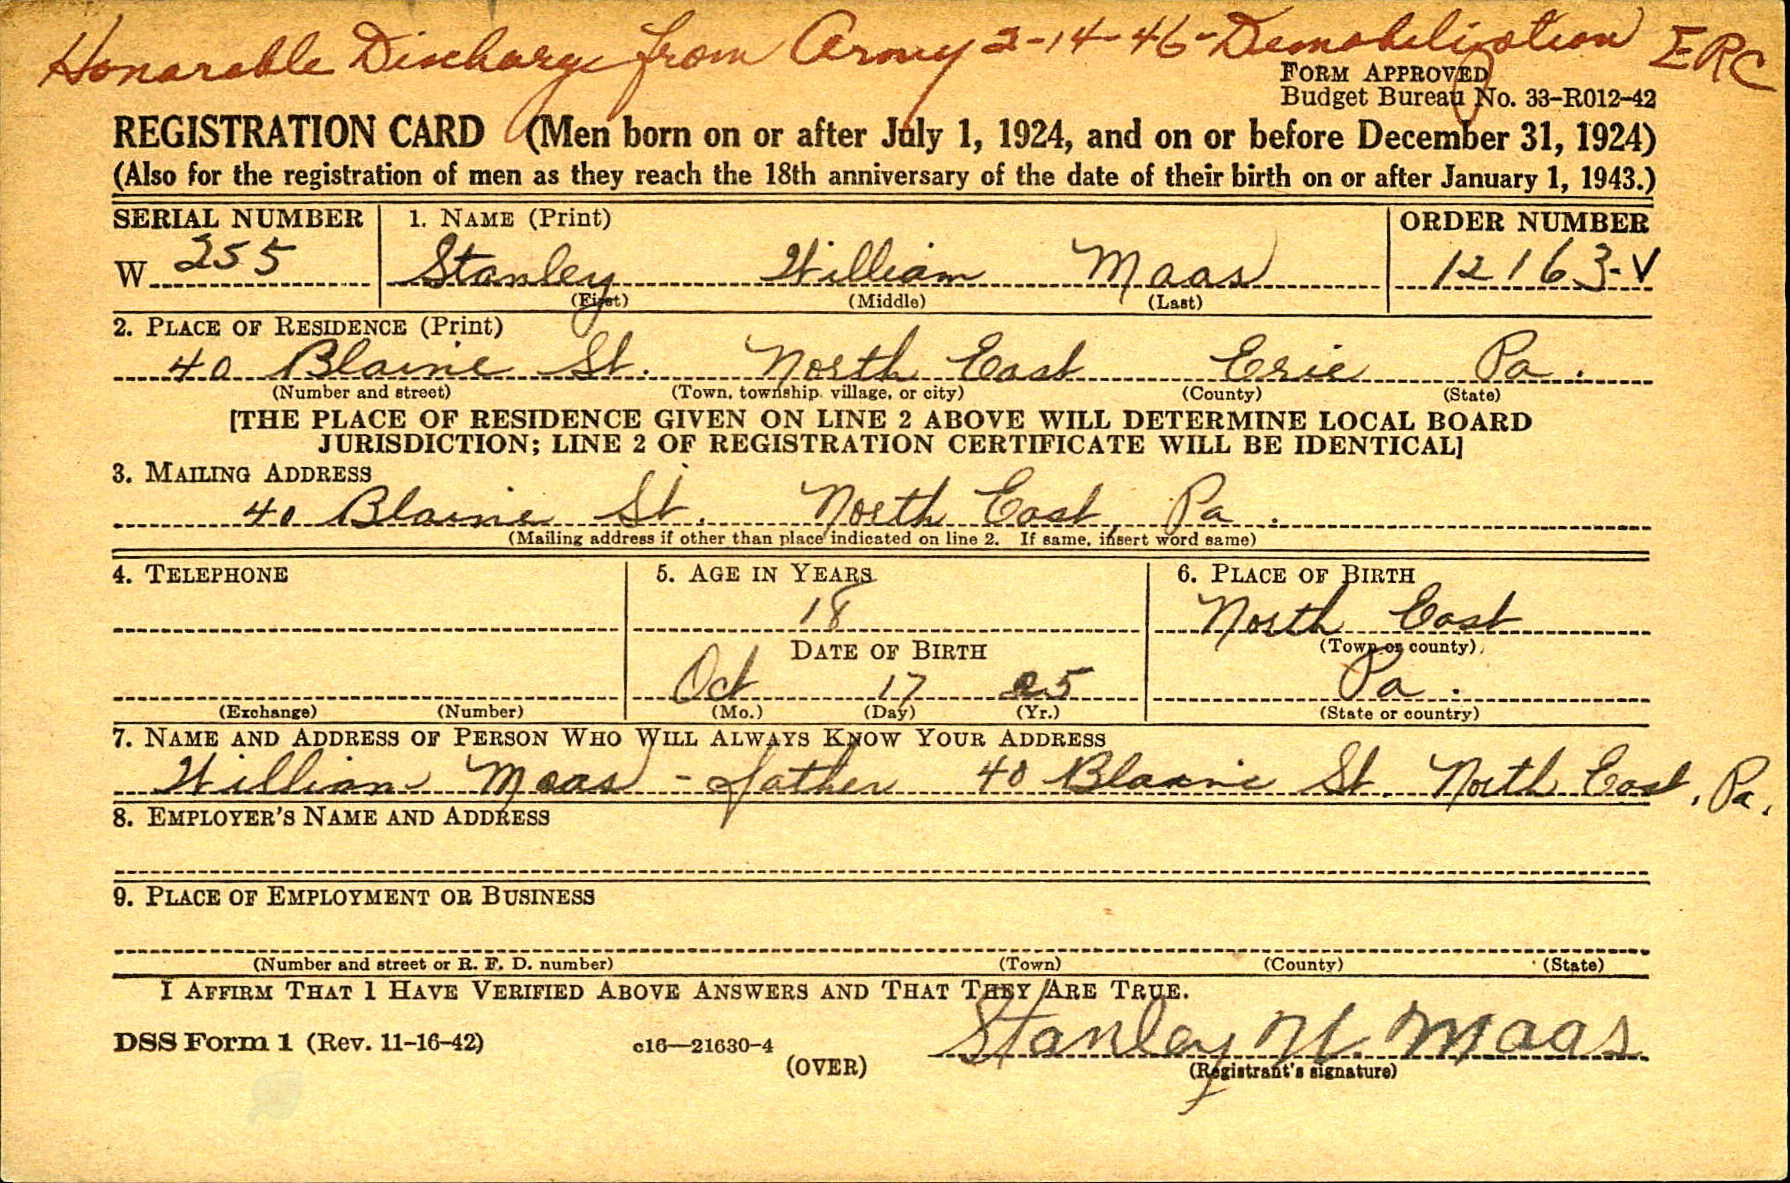 Honorable Discharge from Army 2-14-46-Demobilization ERC
FORM APPROVED
Budget Bureau No. 33-R012-42
REGISTRATION CARD (Men born on or after July 1, 1924, and on or before December 31, 1924)
(Also for the registration of men as they reach the 18th anniversary of the date of their birth on or after January 1, 1943.)
SERIAL NUMBER 1. NAME (Print) ORDER NUMBER
W 255 Stanley William Maas 12163-V
(First) (Middle) (Last)
2. PLACE OF RESIDENCE (Print)
40 Blaine St. North East Erie Pa.
(Number and street) (Town, township, village, or city) (County) (State)
[THE PLACE OF RESIDENCE GIVEN ON LINE 2 ABOVE WILL DETERMINE LOCAL BOARD
JURISDICTION; LINE 2 OF REGISTRATION CERTIFICATE WILL BE IDENTICAL]
3. MAILING ADDRESS
40 Blaine St. North East, Pa.
(Mailing address if other than place indicated on line 2. If same, insert word same)
4. TELEPHONE 5. AGE IN YEARS 6. PLACE OF BIRTH
18 North East
DATE OF BIRTH (Town or county)
Oct 17 25 Pa.
(Exchange) (Number) (Mo.) (Day) (Yr.) (State or country)
7. NAME AND ADDRESS OF PERSON WHO WILL ALWAYS KNOW YOUR ADDRESS
William Maas - father 40 Blaine St. North East, Pa.
8. EMPLOYER'S NAME AND ADDRESS
9. PLACE OF EMPLOYMENT OR BUSINESS
(Number and street or R. F. D. number) (Town) (County) (State)
I AFFIRM THAT I HAVE VERIFIED ABOVE ANSWERS AND THAT THEY ARE TRUE.
DSS Form 1 (Rev. 11-16-42) c16—21630-4 Stanley W. Maas
(OVER) (Registrant's signature)